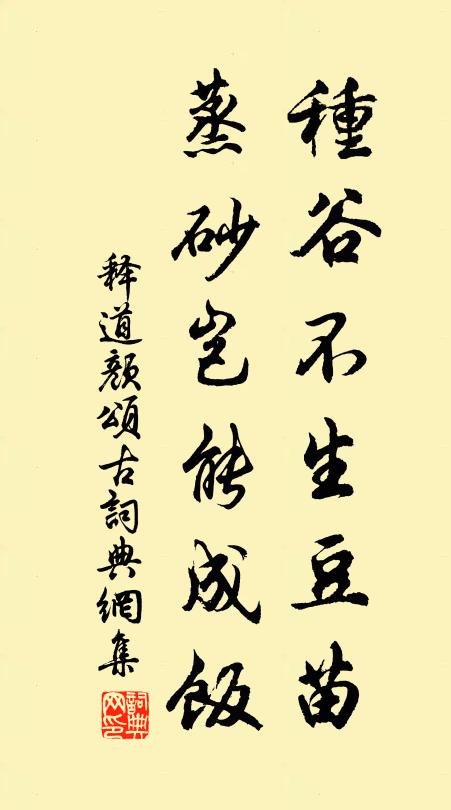 種谷不生豆苗
蒸砂岂能成飯
释道颜頌古詞典網集
詞典网印